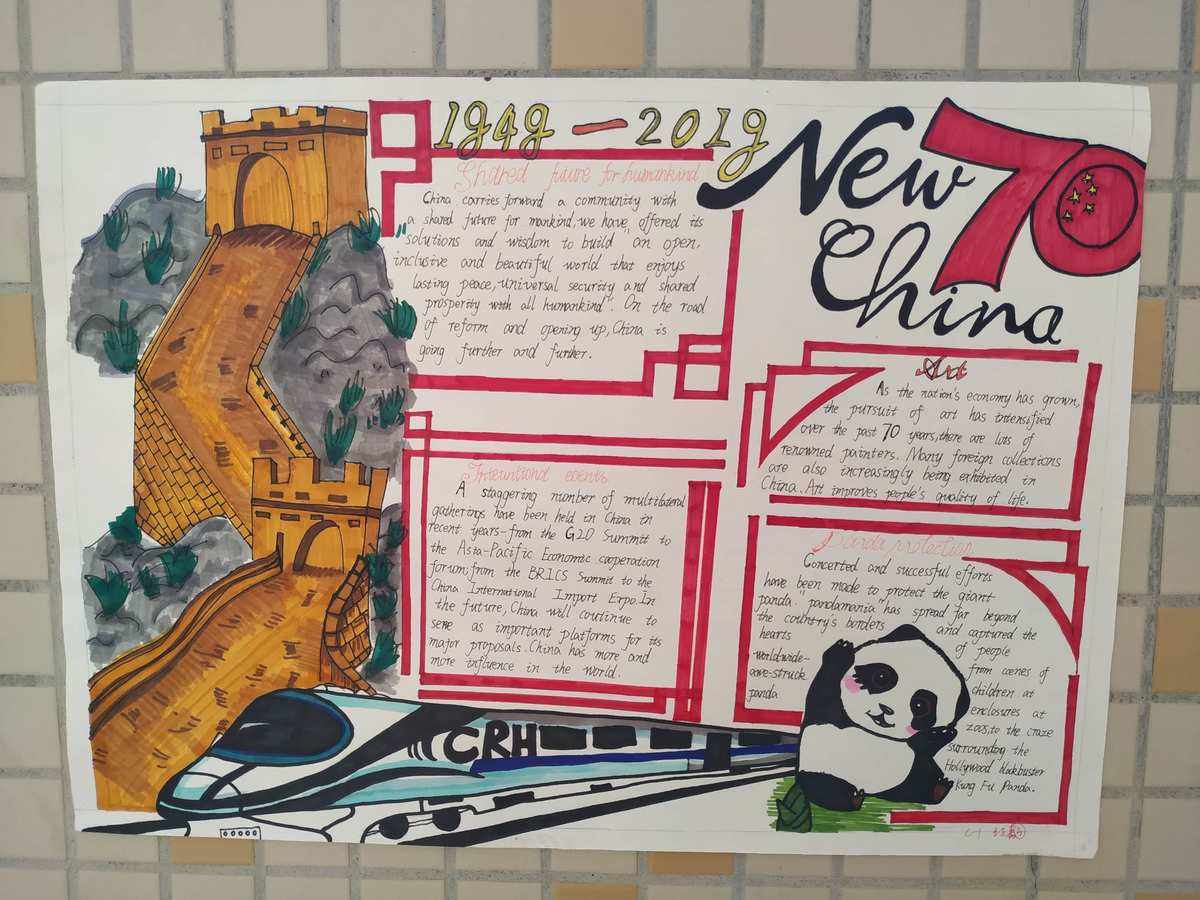 1949 — 2019
New 70
China
Shared future for humankind
China carries forward a community with
a shared future for mankind, we have offered its
"solutions and wisdom to build" an open,
inclusive and beautiful world that enjoys
lasting peace, universal security and shared
prosperity with all humankind". On the road
of reform and opening up, China is
going further and further.
Art
As the nation's economy has grown,
the pursuit of art has intensified
over the past 70 years, there are lots of
renowned painters. Many foreign collections
are also increasingly being exhibited in
China. Art improves people's quality of life.
Interuntional events
A staggering number of multilateral
gatherings have been held in China in
recent years-from the G20 Summit to
the Asia-Pacific Economic cooperation
forum, from the BRICS Summit to the
China International Import Expo. In
the future, China will coutinue to
serve as important platforms for its
major proposals. China has more and
more influence in the world.
Panda protection
Concerted and successful efforts
have been made to protect the giant
panda. "pandamania" has spread far beyond
the country's borders and captured the
hearts of people
worldwide- from scenes of
awe-struck children at
panda enclosures at
zoos, to the craze
surrounding the
Hollywood blockbuster
Kung Fu Panda.
CRH